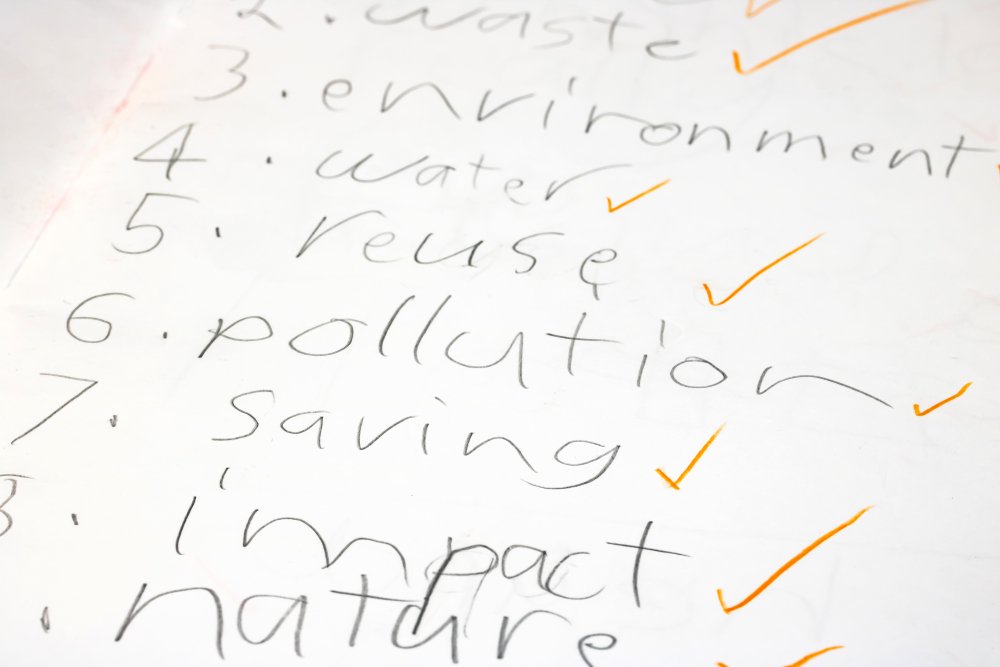 2. waste
3. environment
4. water
5. reuse
6. pollution
7. saving
8. impact
. nature